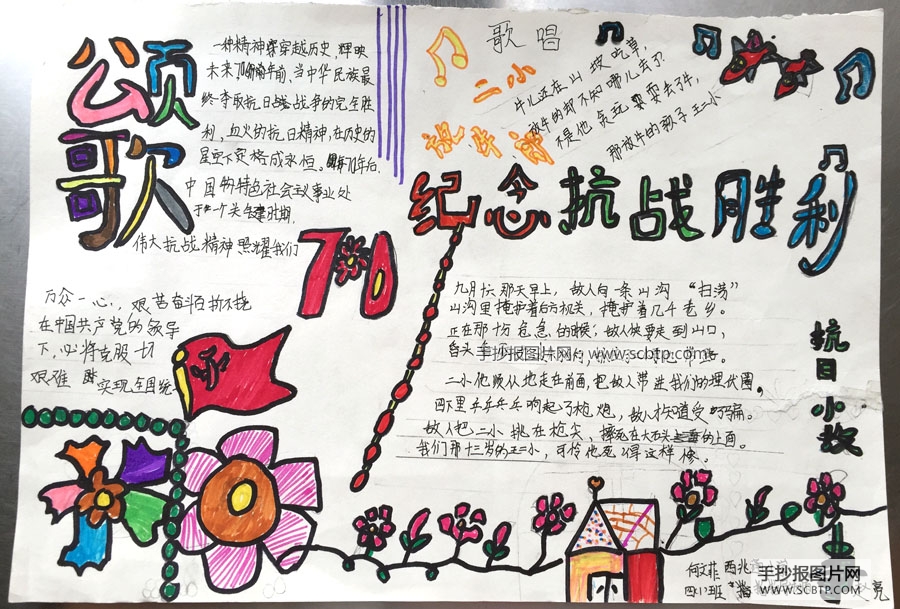 颂歌
一种精神穿越历史,辉映
未来70年前,当中华民族最
终争取抗日战争的完全胜
利,血火的抗日精神,在历史的
星空下定格成永恒。70年后,
中国特色社会主义事业处
于一个关键时期,
伟大抗战精神照耀我们
万众一心,艰苦奋斗百折不挠
在中国共产党的领导
下,必将克服一切
艰难 实现全国统一
70
歌唱
二小
放牛郎
牛儿还在山坡吃草,
放牛的却不知哪儿去了
不是他贪玩耍丢了牛,
那放牛的孩子王二小
纪念抗战胜利
九月十六那天早上,敌人向一条山沟“扫荡”
山沟里掩护着后方机关,掩护着几千老乡。
正在那十分危急的时候,敌人快要走到山口,
手抄报图片网 www.scbtp.com
二小他顺从地走在前面,把敌人带进我们的埋伏圈,
四下里乒乒乓乓响起了枪炮,敌人才知道受了骗。
敌人把二小挑在枪尖,摔死在大石头的上面。
我们那十三岁的王二小,可怜他死得这样惨。
抗日小故
何文菲 西北
四(1)班
手抄报图片网
WWW.SCBTP.COM
亮